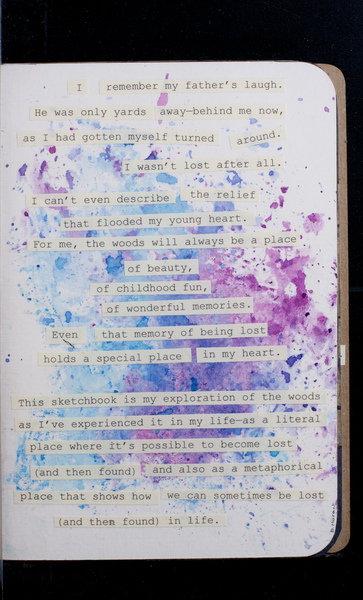 I remember my father's laugh.
He was only yards away—behind me now,
as I had gotten myself turned around.
I wasn't lost after all.
I can't even describe the relief
that flooded my young heart.
For me, the woods will always be a place
of beauty,
of childhood fun,
of wonderful memories.
Even that memory of being lost
holds a special place in my heart.
This sketchbook is my exploration of the woods
as I've experienced it in my life—as a literal
place where it's possible to become lost
(and then found) and also as a metaphorical
place that shows how we can sometimes be lost
(and then found) in life.